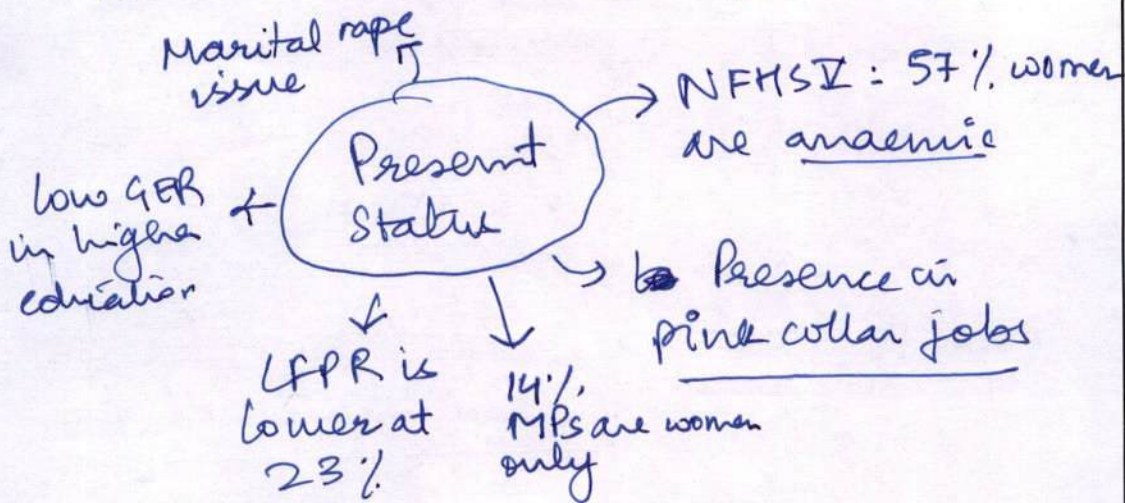 Marital rape
issue
NFHS V : 57% women
are anaemic
Present
Status
low GER
in higher
education
Presence in
pink collar jobs
LFPR is
lower at
23%
14%
MPs are women
only